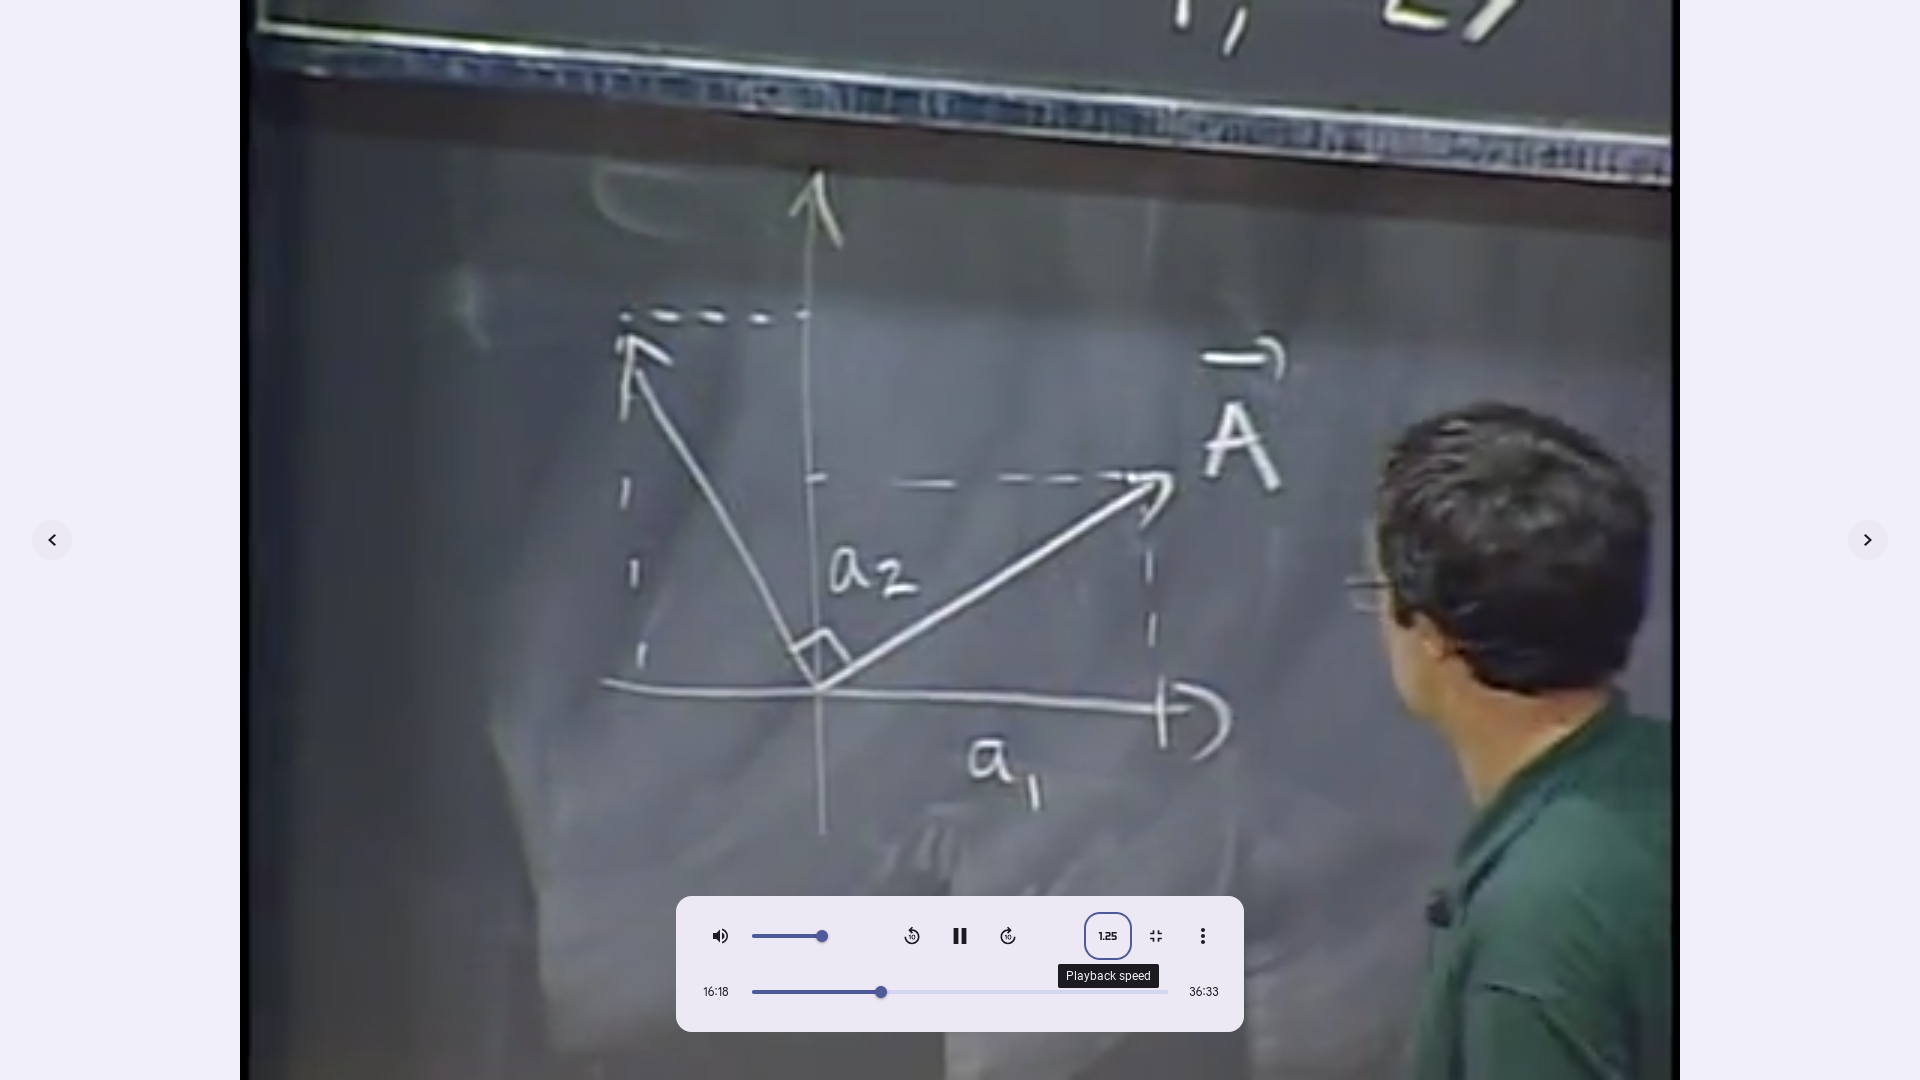 A
a2
a1
10
10
1.25
Playback speed
16:18
36:33